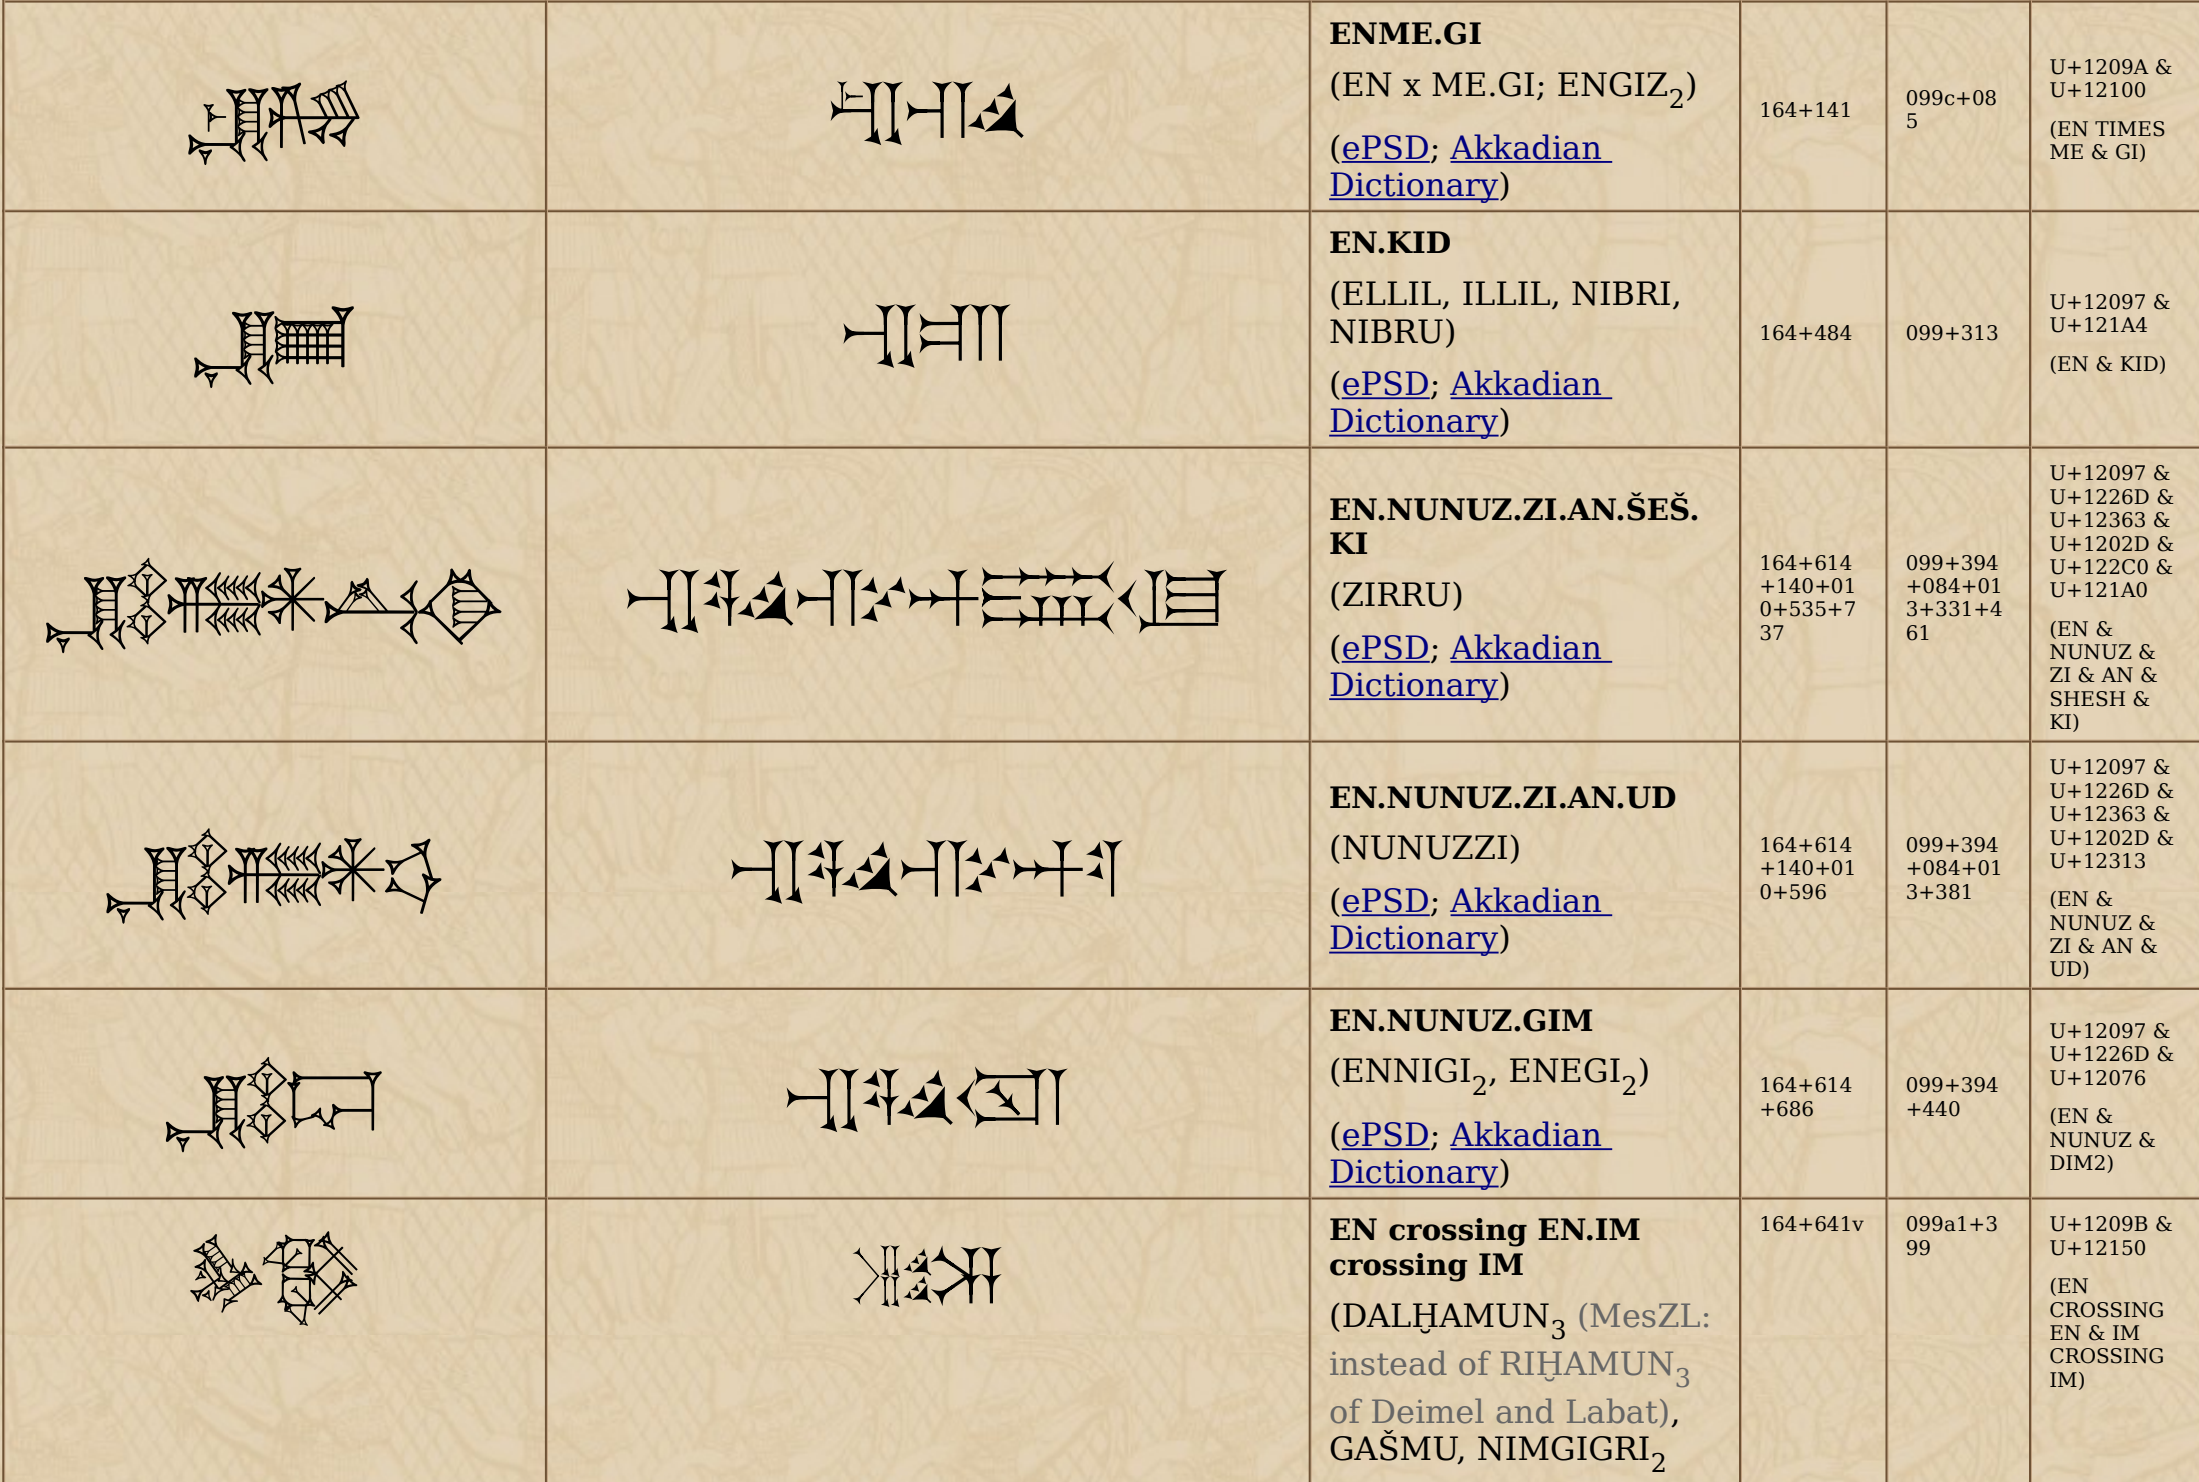 𒂚𒄀
𒂚𒄀
ENME.GI
(EN x ME.GI; ENGIZ₂)
(ePSD; Akkadian
Dictionary)
164+141
099c+08
5
U+1209A &
U+12100
(EN TIMES
ME & GI)
𒂗𒆤
𒂗𒆤
EN.KID
(ELLIL, ILLIL, NIBRI,
NIBRU)
(ePSD; Akkadian
Dictionary)
164+484
099+313
U+12097 &
U+121A4
(EN & KID)
𒂗𒉭𒍣𒀭𒋀𒆠
𒂗𒉭𒍣𒀭𒋀𒆠
EN.NUNUZ.ZI.AN.ŠEŠ.
KI
(ZIRRU)
(ePSD; Akkadian
Dictionary)
164+614
+140+01
0+535+7
37
099+394
+084+01
3+331+4
61
U+12097 &
U+1226D &
U+12363 &
U+1202D &
U+122C0 &
U+121A0
(EN &
NUNUZ &
ZI & AN &
SHESH &
KI)
𒂗𒉭𒍣𒀭𒌓
𒂗𒉭𒍣𒀭𒌓
EN.NUNUZ.ZI.AN.UD
(NUNUZZI)
(ePSD; Akkadian
Dictionary)
164+614
+140+01
0+596
099+394
+084+01
3+381
U+12097 &
U+1226D &
U+12363 &
U+1202D &
U+12313
(EN &
NUNUZ &
ZI & AN &
UD)
𒂗𒉭𒁶
𒂗𒉭𒁶
EN.NUNUZ.GIM
(ENNIGI₂, ENEGI₂)
(ePSD; Akkadian
Dictionary)
164+614
+686
099+394
+440
U+12097 &
U+1226D &
U+12076
(EN &
NUNUZ &
DIM2)
𒂛𒅐
𒂛𒅐
EN crossing EN.IM
crossing IM
(DALḪAMUN₃ (MesZL:
instead of RIḪAMUN₃
of Deimel and Labat),
GAŠMU, NIMGIGRI₂
164+641v
099a1+3
99
U+1209B &
U+12150
(EN
CROSSING
EN & IM
CROSSING
IM)